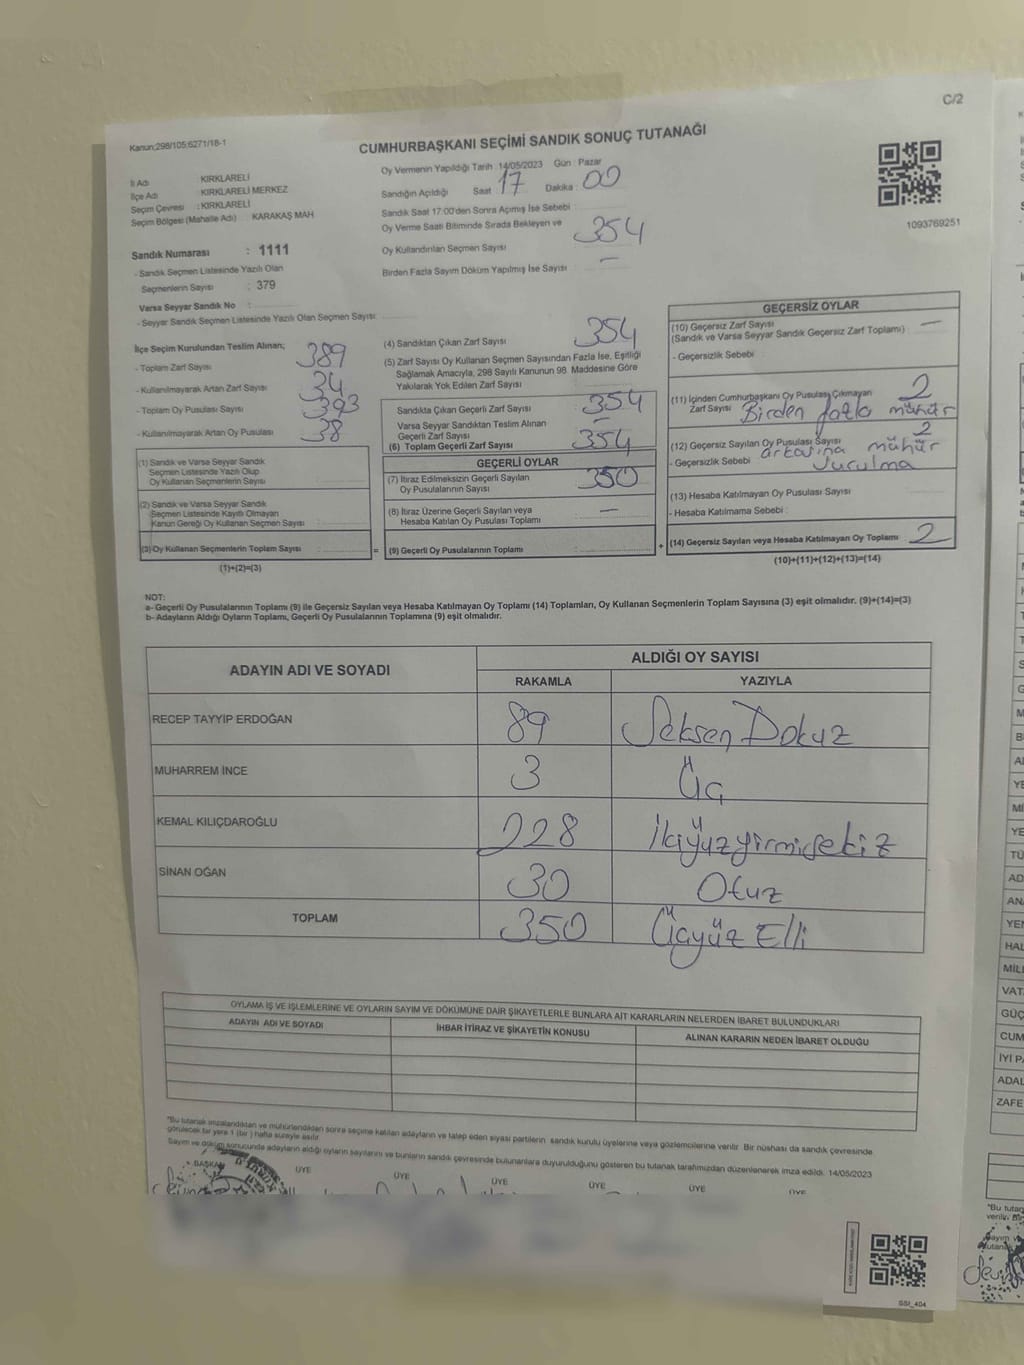 C/2
Kanun;298/105;6271/18-1
CUMHURBAŞKANI SEÇİMİ SANDIK SONUÇ TUTANAĞI
Oy Vermenin Yapıldığı Tarih :14/05/2023 Gün : Pazar
İl Adı KIRKLARELİ
İlçe Adı KIRKLARELİ MERKEZ
Seçim Çevresi : KIRKLARELİ
Seçim Bölgesi (Mahalle Adı) : KARAKAŞ MAH
Sandığın Açıldığı Saat : 17 Dakika : 00
Sandık Saat 17:00'den Sonra Açımış İse Sebebi :
Oy Verme Saati Bitiminde Sırada Bekleyen ve
Oy Kullandırılan Seçmen Sayısı 354
Birden Fazla Sayım Döküm Yapılmış İse Sayısı : —
1093769251
Sandık Numarası : 1111
- Sandık Seçmen Listesinde Yazılı Olan
Seçmenlerin Sayısı : 379
Varsa Seyyar Sandık No :
- Seyyar Sandık Seçmen Listesinde Yazılı Olan Seçmen Sayısı:
İlçe Seçim Kurulundan Teslim Alınan;
- Toplam Zarf Sayısı 389
- Kullanılmayarak Artan Zarf Sayısı : 34
- Toplam Oy Pusulası Sayısı : 393
- Kullanılmayarak Artan Oy Pusulası : 38
(1) Sandık ve Varsa Seyyar Sandık
Seçmen Listesinde Yazılı Olup
Oy Kullanan Seçmenlerin Sayısı :
(2) Sandık ve Varsa Seyyar Sandık
Seçmen Listesinde Kayıtlı Olmayan
Kanun Gereği Oy Kullanan Seçmen Sayısı :
(3) Oy Kullanan Seçmenlerin Toplam Sayısı :
(1)+(2)=(3)
(4) Sandıktan Çıkan Zarf Sayısı : 354
(5) Zarf Sayısı Oy Kullanan Seçmen Sayısından Fazla İse, Eşitliği
Sağlamak Amacıyla, 298 Sayılı Kanunun 98. Maddesine Göre
Yakılarak Yok Edilen Zarf Sayısı
Sandıkta Çıkan Geçerli Zarf Sayısı : 354
Varsa Seyyar Sandıktan Teslim Alınan
Geçerli Zarf Sayısı : —
(6) Toplam Geçerli Zarf Sayısı : 354
GEÇERLİ OYLAR
(7) İtiraz Edilmeksizin Geçerli Sayılan
Oy Pusulalarının Sayısı : 350
(8) İtiraz Üzerine Geçerli Sayılan veya
Hesaba Katılan Oy Pusulası Toplamı : —
= (9) Geçerli Oy Pusulalarının Toplamı :
GEÇERSİZ OYLAR
(10) Geçersiz Zarf Sayısı
(Sandık ve Varsa Seyyar Sandık Geçersiz Zarf Toplamı) : —
- Geçersizlik Sebebi :
(11) İçinden Cumhurbaşkanı Oy Pusulası Çıkmayan
Zarf Sayısı : 2
Birden fazla mühür
(12) Geçersiz Sayılan Oy Pusulası Sayısı : 2
- Geçersizlik Sebebi : arkasına mühür
vurulma
(13) Hesaba Katılmayan Oy Pusulası Sayısı :
- Hesaba Katılmama Sebebi :
+ (14) Geçersiz Sayılan veya Hesaba Katılmayan Oy Toplamı : 2
(10)+(11)+(12)+(13)=(14)
NOT:
a- Geçerli Oy Pusulalarının Toplamı (9) ile Geçersiz Sayılan veya Hesaba Katılmayan Oy Toplamı (14) Toplamları, Oy Kullanan Seçmenlerin Toplam Sayısına (3) eşit olmalıdır. (9)+(14)=(3)
b- Adayların Aldığı Oyların Toplamı, Geçerli Oy Pusulalarının Toplamına (9) eşit olmalıdır.
ADAYIN ADI VE SOYADI
ALDIĞI OY SAYISI
RAKAMLA YAZIYLA
RECEP TAYYİP ERDOĞAN 89 Seksen Dokuz
MUHARREM İNCE 3 Üç
KEMAL KILIÇDAROĞLU 228 İkiyüzyirmisekiz
SİNAN OĞAN 30 Otuz
TOPLAM 350 Üçyüz Elli
OYLAMA İŞ VE İŞLEMLERİNE VE OYLARIN SAYIM VE DÖKÜMÜNE DAİR ŞİKAYETLERLE BUNLARA AİT KARARLARIN NELERDEN İBARET BULUNDUKLARI
ADAYIN ADI VE SOYADI İHBAR İTİRAZ VE ŞİKAYETİN KONUSU ALINAN KARARIN NEDEN İBARET OLDUĞU
*Bu tutanak imzalandıktan ve mühürlendikten sonra seçime katılan adayların ve talep eden siyasi partilerin sandık kurulu üyelerine veya gözlemcilerine verilir. Bir nüshası da sandık çevresinde
görülecek bir yere 1 (bir) hafta süreyle asılır.
Sayım ve döküm sonucunda adayların aldığı oyların sayılarını ve bunların sandık çevresinde bulunanlara duyurulduğunu gösteren bu tutanak tarafımızdan düzenlenerek imza edildi. 14/05/2023
BAŞKAN ÜYE ÜYE ÜYE ÜYE ÜYE ÜYE
GSI_404